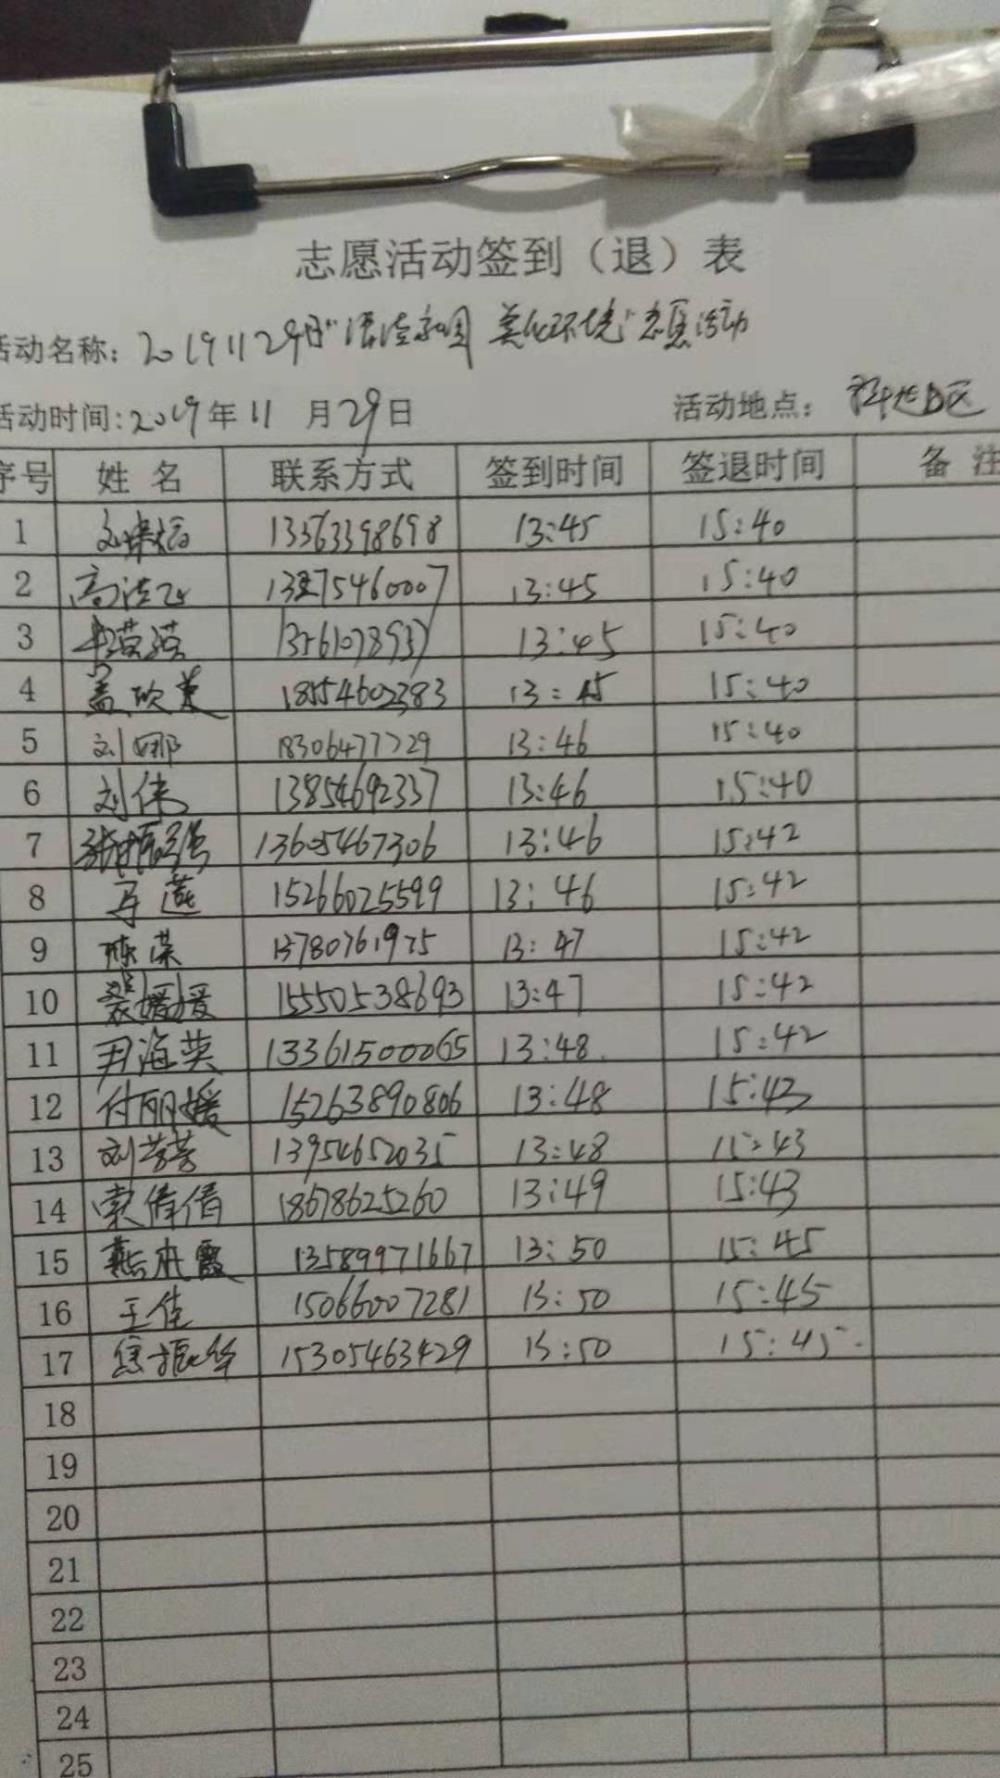 志愿活动签到（退）表
活动名称：20191129日"清洁家园 美化环境"志愿活动
活动时间:2019年11月29日 活动地点：
序号 姓名 联系方式 签到时间 签退时间 备注
1 13563398698 13:45 15:40
2 13275460007 13:45 15:40
3 13561078937 13:45 15:40
4 盖欣美 18554602383 13:45 15:40
5 刘娜 18306477729 13:46 15:40
6 刘伟 13854692337 13:46 15:40
7 张振强 13605467306 13:46 15:42
8 马莲 15266025599 13:46 15:42
9 陈荣 13780761975 13:47 15:42
10 裴媛媛 15550538693 13:47 15:42
11 尹海英 13361500065 13:48 15:42
12 付丽媛 15263890806 13:48 15:43
13 刘芳芳 13954652035 13:48 15:43
14 索倩倩 18678625260 13:49 15:43
15 燕霞 13589971667 13:50 15:45
16 王佳 15066007281 13:50 15:45
17 振华 15305463429 13:50 15:45
18
19
20
21
22
23
24
25